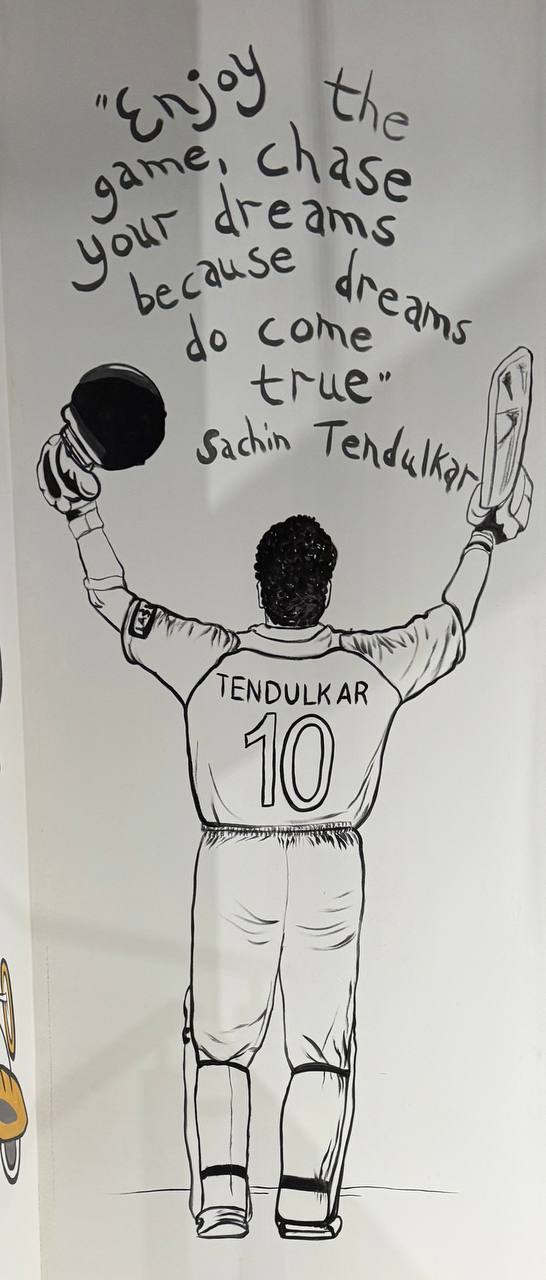 "Enjoy the
game, chase
your dreams
because dreams
do come
true"
Sachin Tendulkar
TENDULKAR
10